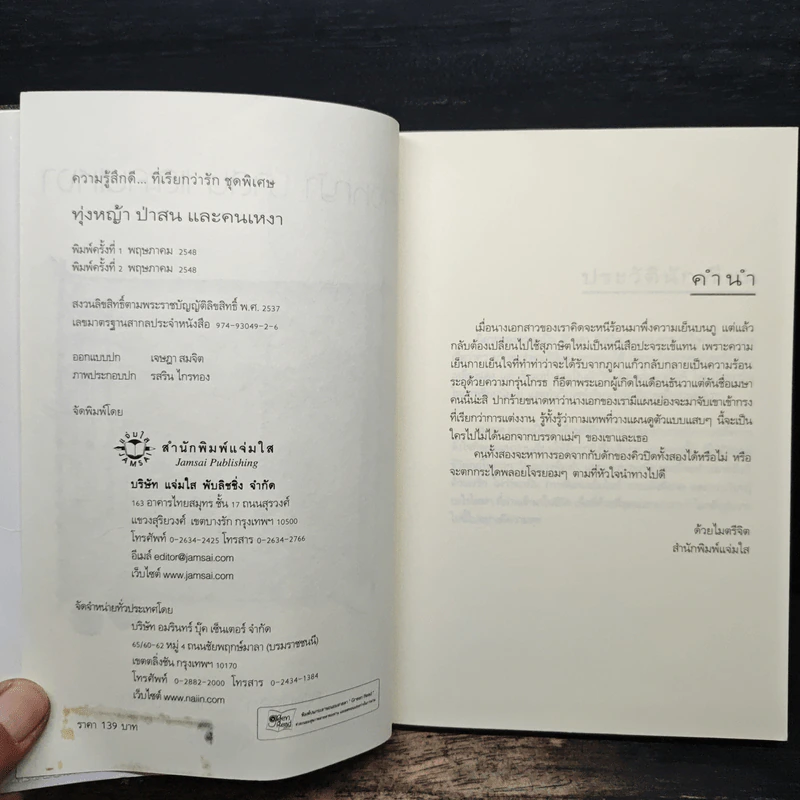 ความรู้สึกดี... ที่เรียกว่ารัก ชุดพิเศษ
ทุ่งหญ้า ป่าสน และคนเหงา
พิมพ์ครั้งที่ 1 พฤษภาคม 2548
พิมพ์ครั้งที่ 2 พฤษภาคม 2548
สงวนลิขสิทธิ์ตามพระราชบัญญัติลิขสิทธิ์ พ.ศ. 2537
เลขมาตรฐานสากลประจำหนังสือ 974-93049-2-6
ออกแบบปก เจษฎา สมจิต
ภาพประกอบปก รสริน ไกรทอง
จัดพิมพ์โดย
แจ่มใส
JAMSAI
สำนักพิมพ์แจ่มใส
Jamsai Publishing
บริษัท แจ่มใส พับลิชชิ่ง จำกัด
163 อาคารไทยสมุทร ชั้น 17 ถนนสุรวงศ์
แขวงสุริยวงศ์ เขตบางรัก กรุงเทพฯ 10500
โทรศัพท์ 0-2634-2425 โทรสาร 0-2634-2766
อีเมล์ editor@jamsai.com
เว็บไซต์ www.jamsai.com
จัดจำหน่ายทั่วประเทศโดย
บริษัท อมรินทร์ บุ๊ค เซ็นเตอร์ จำกัด
65/60-62 หมู่ 4 ถนนชัยพฤกษ์มาลา (บรมราชชนนี)
เขตตลิ่งชัน กรุงเทพฯ 10170
โทรศัพท์ 0-2882-2000 โทรสาร 0-2434-1384
เว็บไซต์ www.naiin.com
ราคา 139 บาท
คำนำ
เมื่อนางเอกสาวของเราคิดจะหนีร้อนมาพึ่งความเย็นบนภู แต่แล้ว
กลับต้องเปลี่ยนไปใช้สุภาษิตใหม่เป็นหนีเสือปะจระเข้แทน เพราะความ
เย็นกายเย็นใจที่ทำท่าว่าจะได้รับจากภูผาแก้วกลับกลายเป็นความร้อน
ระอุด้วยความกรุ่นโกรธ ก็อีตาพระเอกผู้เกิดในเดือนธันวาแต่ดันชื่อเมษา
คนนี้น่ะสิ ปากร้ายขนาดหาว่านางเอกของเรามีแผนย่องจะมาจับเขาเข้ากรง
ที่เรียกว่าการแต่งงาน รู้ทั้งรู้ว่ากามเทพที่วางแผนดูตัวแบบแสบๆ นี้จะเป็น
ใครไปไม่ได้นอกจากบรรดาแม่ๆ ของเขาและเธอ
คนทั้งสองจะหาทางรอดจากกับดักของคิวปิดทั้งสองได้หรือไม่ หรือ
จะตกกระไดพลอยโจรยอมๆ ตามที่หัวใจนำทางไปดี
ด้วยไมตรีจิต
สำนักพิมพ์แจ่มใส